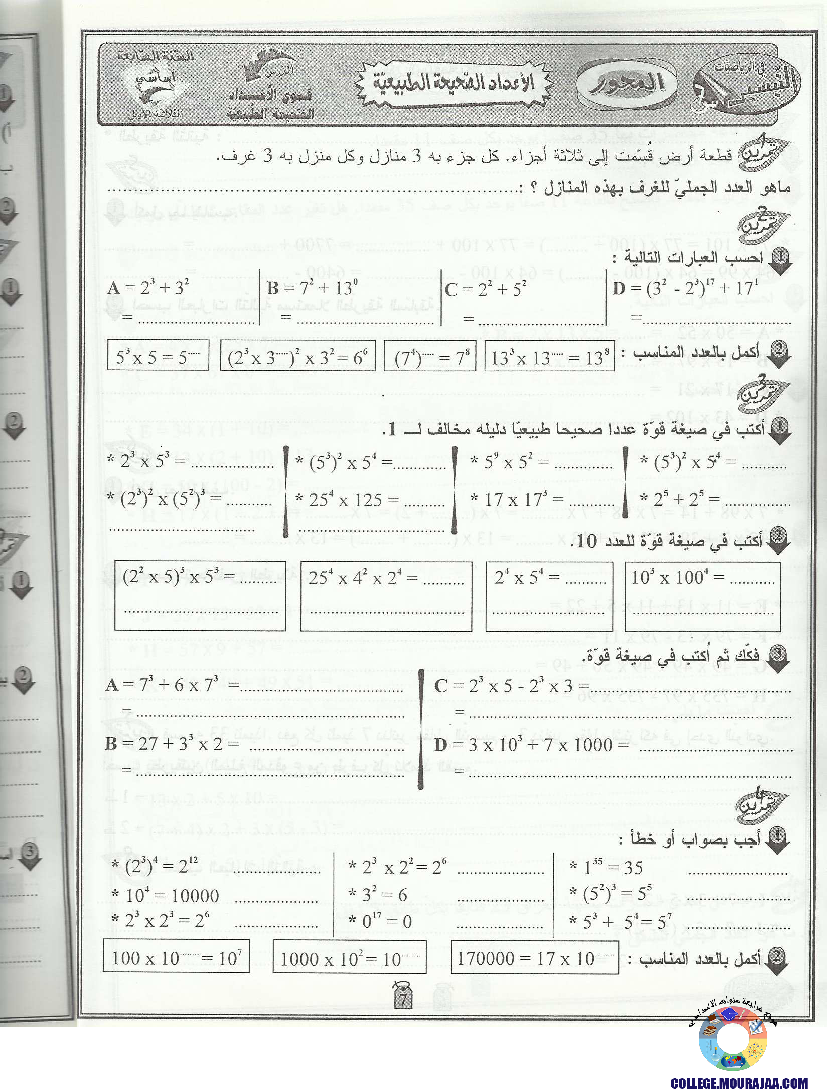 السنة السابعة
أساسي
الثلاثي الأول
الدرس
قوى الأعداد
الصحيحة الطبيعية
الأعداد الصحيحة الطبيعية
المحور
في الرياضيات
تمرين 1 قطعة أرض قُسّمت إلى ثلاثة أجزاء. كل جزء به 3 منازل وكل منزل به 3 غرف.
ماهو العدد الجمليّ للغرف بهذه المنازل ؟ :..........
تمرين 2
1 احسب العبارات التالية :
A = 2³ + 3² B = 7² + 13⁰ C = 2² + 5² D = (3² - 2³)¹⁷ + 17¹
= .......... = .......... = .......... =..........
2 أكمل بالعدد المناسب : 13³ x 13^{....} = 13⁸ (7⁴)^{....} = 7⁸ (2³ x 3^{....})² x 3² = 6⁶ 5³ x 5 = 5^{....}
تمرين 3
1 أكتب في صيغة قوّة عددا صحيحا طبيعيّا دليله مخالف لـ 1.
* 2³ x 5³ = .......... * (5³)² x 5⁴ = .......... * 5⁹ x 5² = .......... * (5³)² x 5⁴ = ..........
* (2³)² x (5²)³ = .......... * 25⁴ x 125 = .......... * 17 x 17³ = .......... * 2⁵ + 2⁵ = ..........
2 أكتب في صيغة قوّة للعدد 10.
(2² x 5)³ x 5³ = .......... 25⁴ x 4² x 2⁴ = .......... 2⁴ x 5⁴ = .......... 10³ x 100⁴ = ..........
3 فكّك ثم أكتب في صيغة قوّة.
A = 7³ + 6 x 7³ =.......... C = 2³ x 5 - 2³ x 3 =..........
= .......... = ..........
B = 27 + 3³ x 2 = .......... D = 3 x 10³ + 7 x 1000 = ..........
= .......... = ..........
تمرين 4
1 أجب بصواب أو خطأ :
* (2³)⁴ = 2¹² .......... * 2³ x 2² = 2⁶ .......... * 1³⁵ = 35 ..........
* 10⁴ = 10000 .......... * 3² = 6 .......... * (5²)³ = 5⁵ ..........
* 2³ x 2³ = 2⁶ .......... * 0¹⁷ = 0 .......... * 5³ + 5⁴ = 5⁷ ..........
2 أكمل بالعدد المناسب : 170000 = 17 x 10^{....} 1000 x 10² = 10^{....} 100 x 10^{....} = 10⁷
7
COLLEGE.MOURAJAA.COM